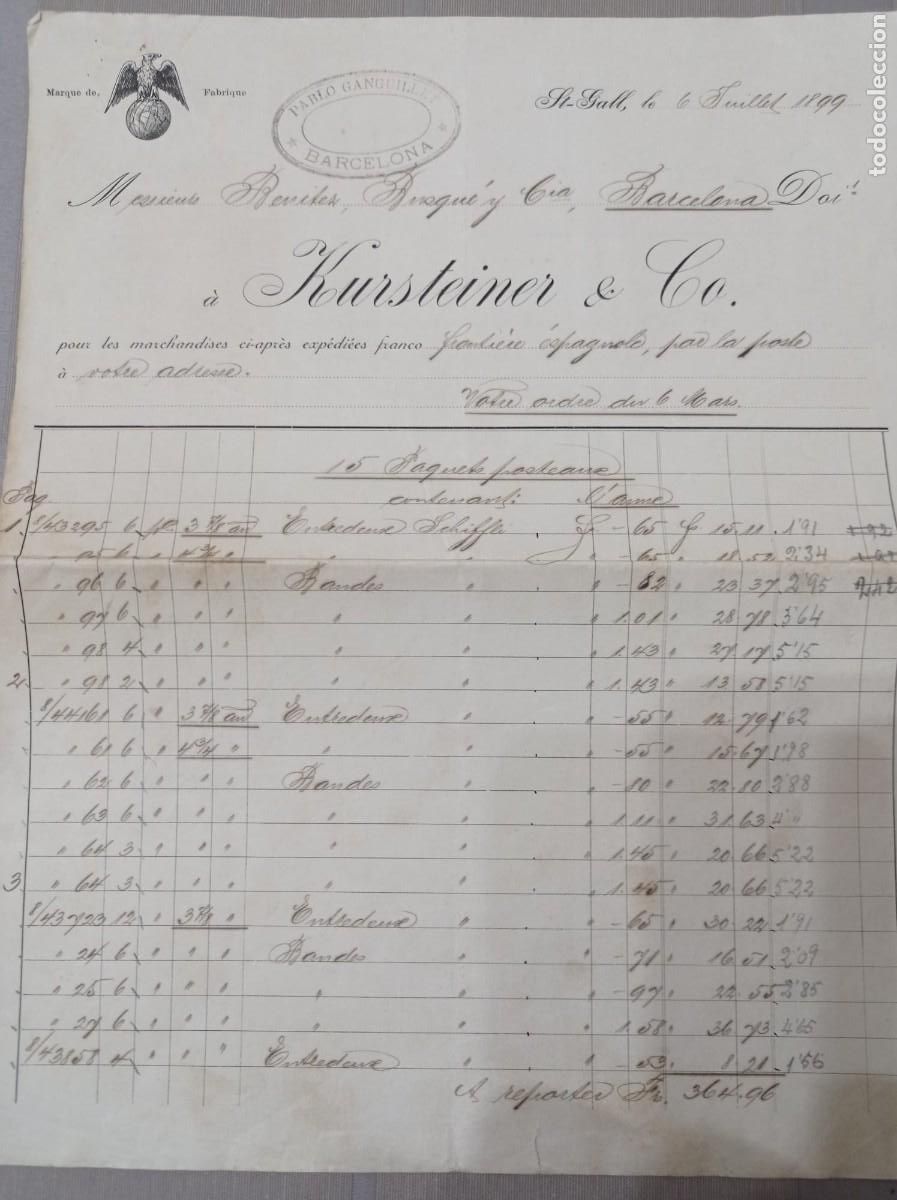 Marque de Fabrique
PABLO GANGUILLET
BARCELONA
St-Gall, le 6 Juillet 1899
Messieurs Benitez, Busqué y Cia, Barcelona Doit
à Kursteiner & Co.
pour les marchandises ci-après expédiées franco frontière éspagnole, par la poste
à votre adresse.
Votre ordre du 6 Mars.
15 Paquets posteaux
Paq contenant: L'aune
1. S/43295 6 ps 3 7/8 au Entredeux Schiffli Fr - 65 fr 15.11 1'91 1.92
" 95 6 " 4 3/4 " " " " - 65 " 18.52 2'34
" 96 6 " " " Bandes " " - 82 " 23 37 2'95 2,42
" 97 6 " " " " " " 1.01 " 28.78 3'64
" 98 4 " " " " " " 1.43 " 27.17 5'15
2. " 98 2 " " " " " " 1.43 " 13.58 5'15
S/44161 6 " 3 7/8 au Entredeux " " - 55 " 12.79 1'62
" 61 6 " 4 3/4 " " " " - 55 " 15.67 1'98
" 62 6 " " " Bandes " " - 80 " 22.80 2'88
" 63 6 " " " " " " 1.11 " 31.63 4'"
" 64 3 " " " " " " 1.45 " 20.66 5'22
3. " 64 3 " " " " " " 1.45 " 20.66 5'22
S/43723 12 " 3 7/8 " Entredeux " " - 65 " 30.22 1'91
" 24 6 " " " Bandes " " - 71 " 16.51 2'09
" 25 6 " " " " " " - 97 " 22.55 2'85
" 27 6 " " " " " " 1.58 " 36.73 4'65
S/43858 4 " " " Entredeux " " - 53 " 8 21 1'56
A reporter Fr. 364.96
todocoleccion